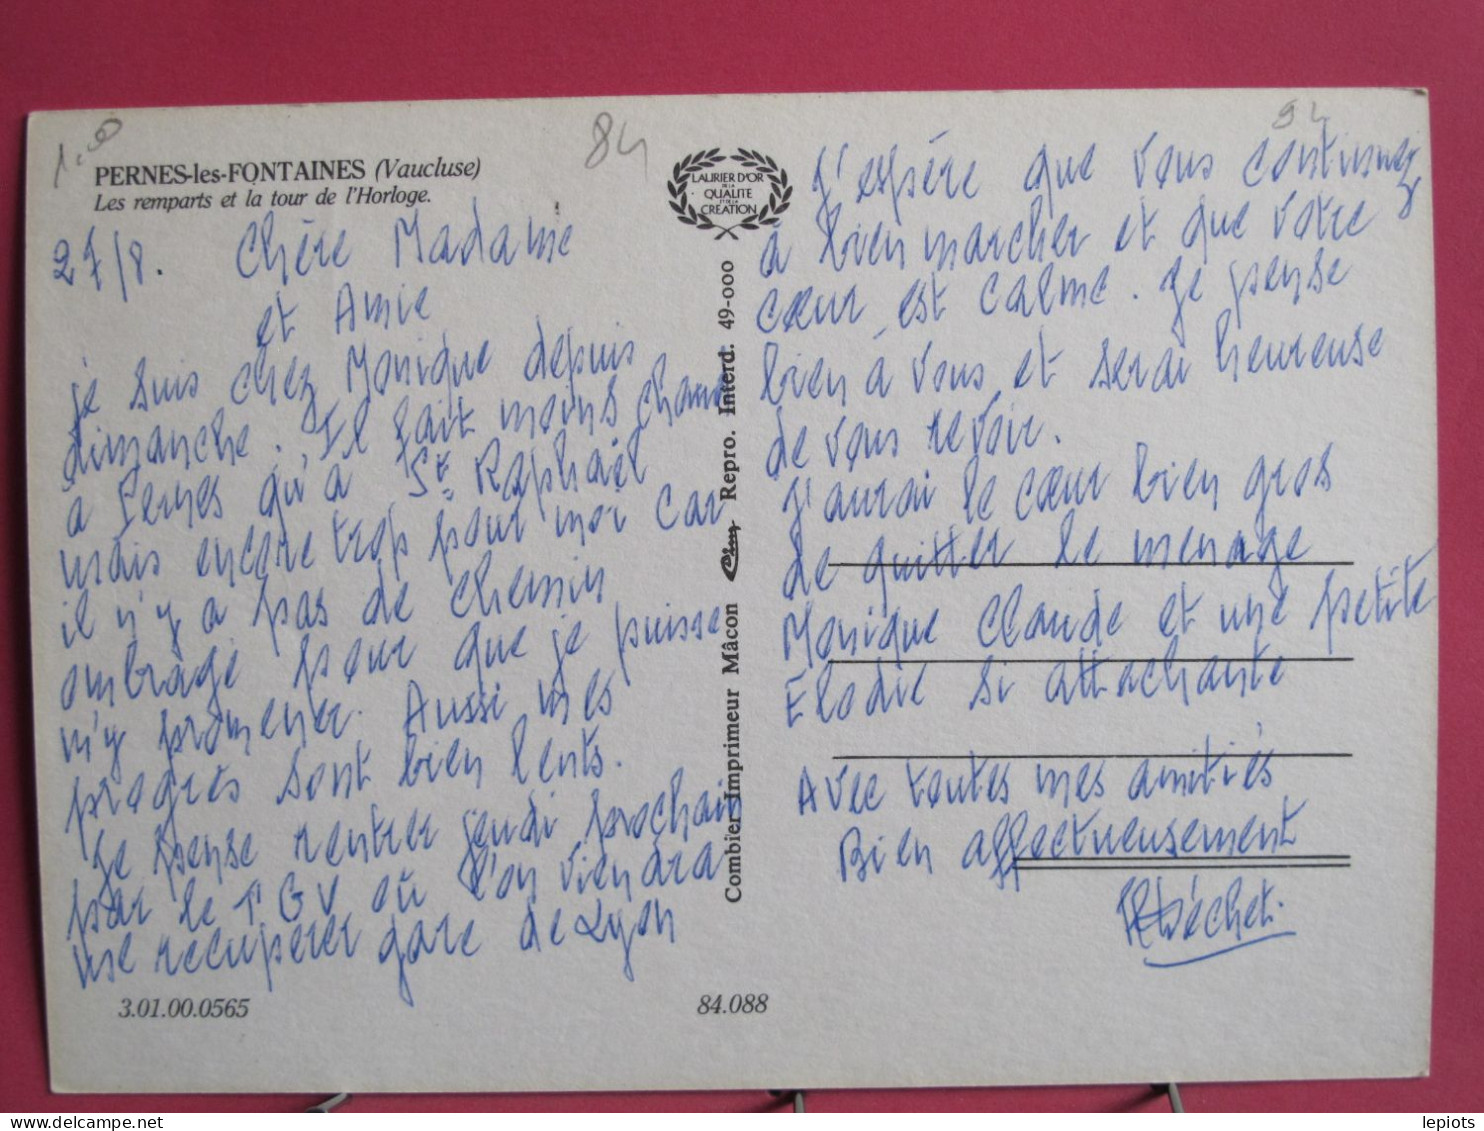 1.0
84
94
PERNES-les-FONTAINES (Vaucluse)
Les remparts et la tour de l'Horloge.
27/8. Chère Madame
et Amie
je suis chez Monique depuis
dimanche. Il fait moins chaud
à Pernes qu'à St Raphaël
mais encore trop pour moi car
il n'y a pas de chemin
ombragé pour que je puisse
m'y promener. Aussi mes
progrès sont bien lents.
Je pense rentrer jeudi prochain
par le TGV où l'on viendra
me recupérer gare de Lyon
3.01.00.0565
LAURIER D'OR
DE LA
QUALITE
ET DE LA
CREATION
Combier Imprimeur Mâcon Repro. Interd. 49-000
84.088
J'espère que vous continuez
à bien marcher et que votre
cœur est calme. Je pense
bien à vous et serai heureuse
de vous revoir.
J'aurai le cœur bien gros
de quitter le menage
Monique Claude et une petite
Élodie si attachante
Avec toutes mes amitiés
Bien affectueusement
lepiots